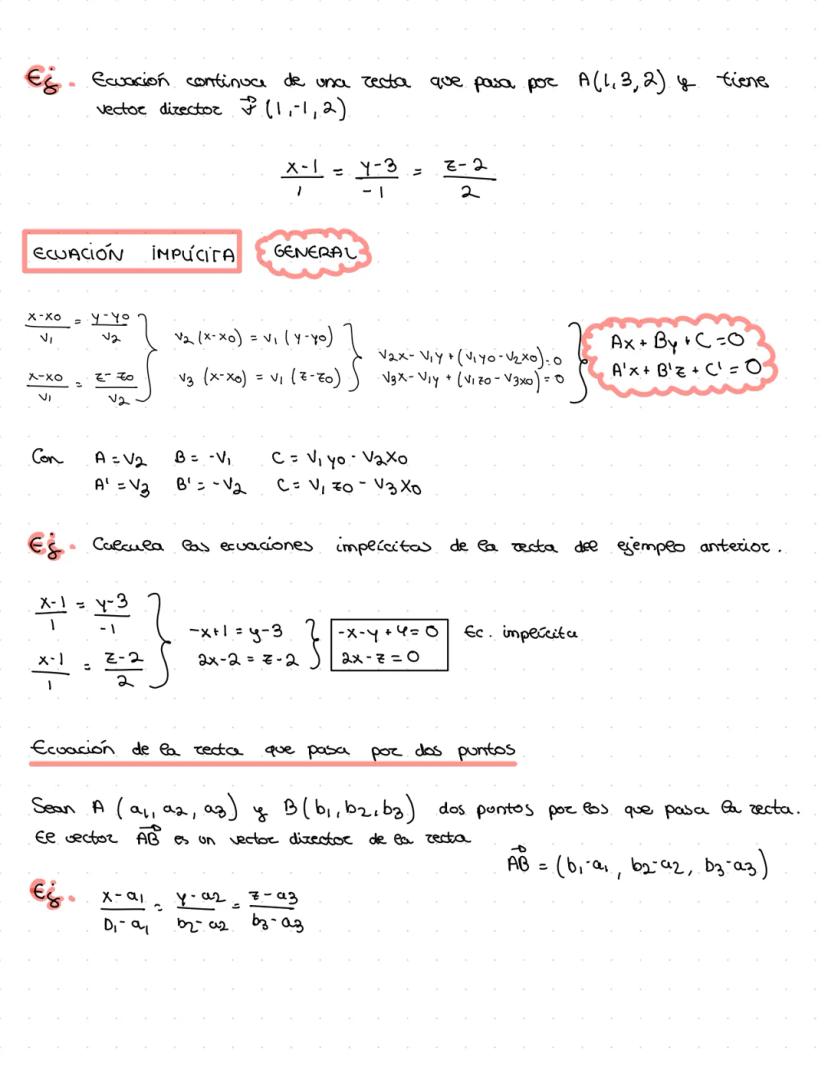 Ej. Ecuación continua de una recta que pasa por A(1,3,2) y tiene
vector director v⃗ (1,-1,2)
(x-1)/1 = (y-3)/-1 = (z-2)/2
ECUACIÓN IMPLÍCITA GENERAL
(x-x0)/v1 = (y-y0)/v2 } v2(x-x0) = v1(y-y0) } v2x - v1y + (v1y0 - v2x0) = 0 } Ax + By + C = 0
(x-x0)/v1 = (z-z0)/v2 } v3(x-x0) = v1(z-z0) } v3x - v1y + (v1z0 - v3x0) = 0 } A'x + B'z + C' = 0
Con A = v2 B = -v1 C = v1y0 - v2x0
A' = v3 B' = -v2 C = v1z0 - v3x0
Ej. Calcula las ecuaciones implícitas de la recta del ejemplo anterior.
(x-1)/1 = (y-3)/-1 } -x+1 = y-3 } -x-y+4=0 Ec. implícita
(x-1)/1 = (z-2)/2 } 2x-2 = z-2 } 2x-z=0
Ecuación de la recta que pasa por dos puntos
Sean A (a1, a2, a3) y B(b1, b2, b3) dos puntos por los que pasa la recta.
El vector AB⃗ es un vector director de la recta
AB⃗ = (b1-a1, b2-a2, b3-a3)
Ej. (x-a1)/(b1-a1) = (y-a2)/(b2-a2) = (z-a3)/(b3-a3)